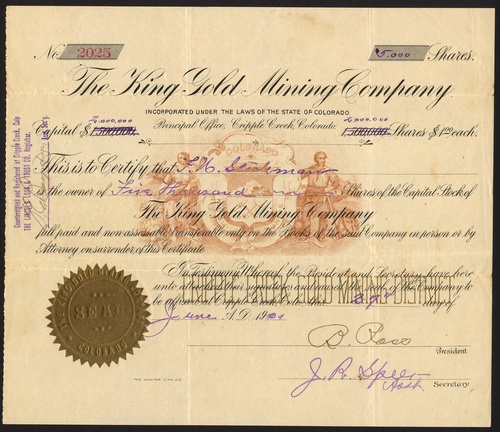 No. 2025 5,000 Shares.
The King Gold Mining Company
INCORPORATED UNDER THE LAWS OF THE STATE OF COLORADO.
Principal Office, Cripple Creek, Colorado.
Capital $1,500,000 2,000,000 1,500,000 Shares $1.00 each.
COLORADO
This is to Certify that
is the owner of Five thousand Shares of the Capital Stock of
The King Gold Mining Company
full paid and non-assessable transferable only on the Books of the said Company in person or by
Attorney on surrender of this Certificate.
In Testimony Whereof, the President and Secretary have here
unto attached their signatures and caused the seal of this Company to
be affixed at Cripple Creek, Colo. this 29th day of
June A.D. 190
SEAL
COLORADO
President
THE DENVER LITH. CO.
J. R.
Secretary
Countersigned and Registered at Cripple Creek, Colo